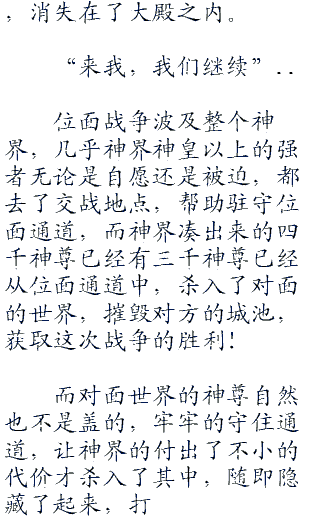 ，消失在了大殿之内。
“来我，我们继续”..
位面战争波及整个神
界，几乎神界神皇以上的强
者无论是自愿还是被迫，都
去了交战地点，帮助驻守位
面通道，而神界凑出来的四
千神尊已经有三千神尊已经
从位面通道中，杀入了对面
的世界，摧毁对方的城池，
获取这次战争的胜利!
而对面世界的神尊自然
也不是盖的，牢牢的守住通
道，让神界的付出了不小的
代价才杀入了其中，随即隐
藏了起来，打